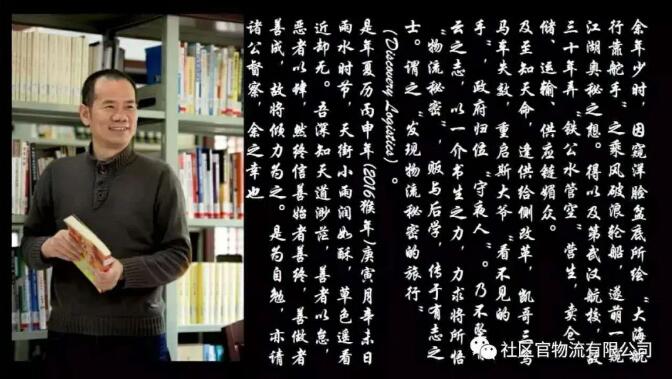 余年少时，因窥洋脸盆底所绘"大海航
行靠舵手"之乘风破浪轮船，遂萌一窥
江湖奥秘之想。得以及第武汉航校，故
三十年弄"铁公水管空"营生，卖仓
储、运输、供应链媚众。
及至知天命，逢供给侧改革，凯哥三驾
马车失效，重启斯大爷"看不见的
手"，政府归位"守夜人"。乃不坠
云之志，以一介书生之力，力求将所悟
"物流秘密"，贩与后学，传于有志之
士。谓之"发现物流秘密的旅行"
(Discovery Logistics)。
是年夏历丙申年(2016猴年)庚寅月辛未日
雨水时节，天街小雨润如酥，草色遥看
近却无。吾深知天道渺茫，善者以怠，
恶者以肆，然终信善始者善终，善做者
善成，故将倾力为之。是为自勉，亦请
诸公督察，余之幸也
社区官物流有限公司